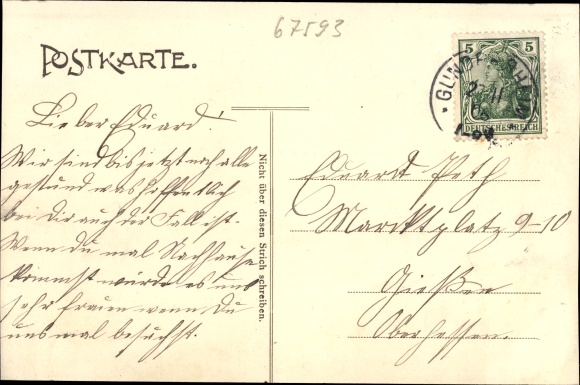 67593
POSTKARTE.
5 5
DEUTSCHES REICH
Lieber Eduard!
Wir sind bis jetzt noch alle
gesund was hoffentlich
bei Dir auch der Fall ist.
Wenn du mal Nachhause
kommst würde es uns
sehr freuen wenn Du
uns mal besuchst.
Nicht über diesen Strich schreiben.
Eduard Peth
Marcktplatz 9-10
Gießen
Oberhessen.